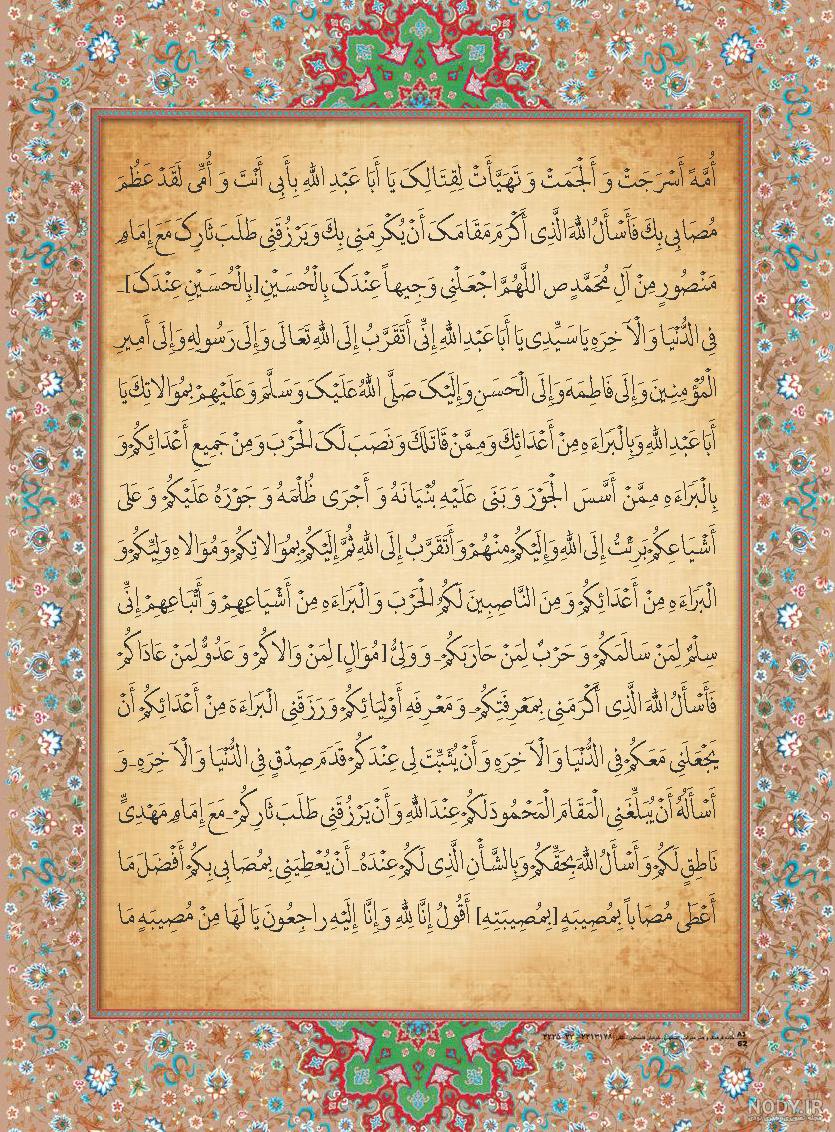 أُمَّهً أَسْرَجَتْ وَ أَلْجَمَتْ وَ تَهَيَّأَتْ لِقِتَالِکَ يَا أَبَا عَبْدِ اللهِ بِأَبِی أَنْتَ وَ أُمِّی لَقَدْ عَظُمَ
مُصَابِی بِكَ فَأَسْأَلُ اللهَ الَّذِی أَكْرَمَ مَقَامَکَ أَنْ يُكْرِمَنِی بِكَ وَ يَرْزُقَنِی طَلَبَ ثَارِکَ مَعَ إِمَامٍ
مَنْصُورٍ مِنْ آلِ مُحَمَّدٍ ص اللَّهُمَّ اجْعَلْنِی وَجِيهاً عِنْدَکَ بِالْحُسَيْنِ [بِالْحُسَيْنِ عِنْدَکَ]ـ
فِی الدُّنْيَا وَ الْآخِرَهِ يَا سَيِّدِی يَا أَبَا عَبْدِ اللهِ إِنِّی أَتَقَرَّبُ إِلَى اللهِ تَعَالَى وَ إِلَى رَسُولِهِ وَ إِلَى أَمِيرِ
الْمُؤْمِنِينَ وَ إِلَى فَاطِمَهَ وَ إِلَى الْحَسَنِ وَ إِلَيْکَ صَلَّى اللهُ عَلَيْکَ وَ سَلَّمَ وَ عَلَيْهِمْ بِمُوَالاتِكَ يَا
أَبَا عَبْدِ اللهِ وَ بِالْبَرَاءَهِ مِنْ أَعْدَائِكَ وَ مِمَّنْ قَاتَلَكَ وَ نَصَبَ لَکَ الْحَرْبَ وَ مِنْ جَمِيعِ أَعْدَائِكُمْ وَ
بِالْبَرَاءَهِ مِمَّنْ أَسَّسَ الْجَوْرَ وَ بَنَى عَلَيْهِ بُنْيَانَهُ وَ أَجْرَى ظُلْمَهُ وَ جَوْرَهُ عَلَيْكُمْ وَ عَلَى
أَشْيَاعِكُمْ بَرِئْتُ إِلَى اللهِ وَ إِلَيْكُمْ مِنْهُمْ وَ أَتَقَرَّبُ إِلَى اللهِ ثُمَّ إِلَيْكُمْ بِمُوَالاتِكُمْ وَ مُوَالاهِ وَلِيِّكُمْ وَ
الْبَرَاءَهِ مِنْ أَعْدَائِكُمْ وَ مِنَ النَّاصِبِينَ لَكُمُ الْحَرْبَ وَ الْبَرَاءَهِ مِنْ أَشْيَاعِهِمْ وَ أَتْبَاعِهِمْ إِنِّی
سِلْمٌ لِمَنْ سَالَمَكُمْ وَ حَرْبٌ لِمَنْ حَارَبَكُمْ ـ وَ وَلِیٌّ [مُوَالٍ] لِمَنْ وَالاكُمْ وَ عَدُوٌّ لِمَنْ عَادَاكُمْ
فَأَسْأَلُ اللهَ الَّذِی أَكْرَمَنِی بِمَعْرِفَتِكُمْ ـ وَ مَعْرِفَهِ أَوْلِيَائِكُمْ وَ رَزَقَنِی الْبَرَاءَهَ مِنْ أَعْدَائِكُمْ أَنْ
يَجْعَلَنِی مَعَكُمْ فِی الدُّنْيَا وَ الْآخِرَهِ وَ أَنْ يُثَبِّتَ لِی عِنْدَكُمْ قَدَمَ صِدْقٍ فِی الدُّنْيَا وَ الْآخِرَهِ ـ وَ
أَسْأَلُهُ أَنْ يُبَلِّغَنِی الْمَقَامَ الْمَحْمُودَ لَكُمْ عِنْدَ اللهِ وَ أَنْ يَرْزُقَنِی طَلَبَ ثَارِكُمْ ـ مَعَ إِمَامٍ مَهْدِیٍّ
نَاطِقٍ لَكُمْ وَ أَسْأَلُ اللهَ بِحَقِّكُمْ وَ بِالشَّأْنِ الَّذِی لَكُمْ عِنْدَهُ ـ أَنْ يُعْطِيَنِی بِمُصَابِی بِكُمْ أَفْضَلَ مَا
أَعْطَى مُصَاباً بِمُصِيبَهٍ [بِمُصِيبَتِهِ] أَقُولُ إِنَّا لِلهِ وَ إِنَّا إِلَيْهِ رَاجِعُونَ يَا لَهَا مِنْ مُصِيبَهٍ مَا
A3
62
NODY.IR